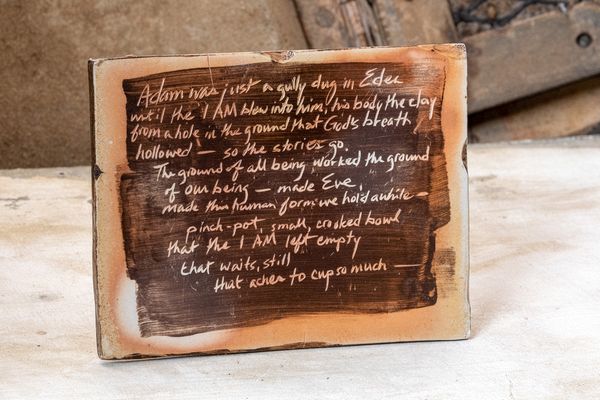 Adam was just a gully dug in Eden
until the I AM blew into him, his body the clay
from a hole in the ground that God's breath
hollowed — so the stories go.
The ground of all being worked the ground
of our being — made Eve,
made this human form we hold awhile —
pinch-pot, small, crooked bowl
that the I AM left empty
that waits, still
that aches to cup so much —